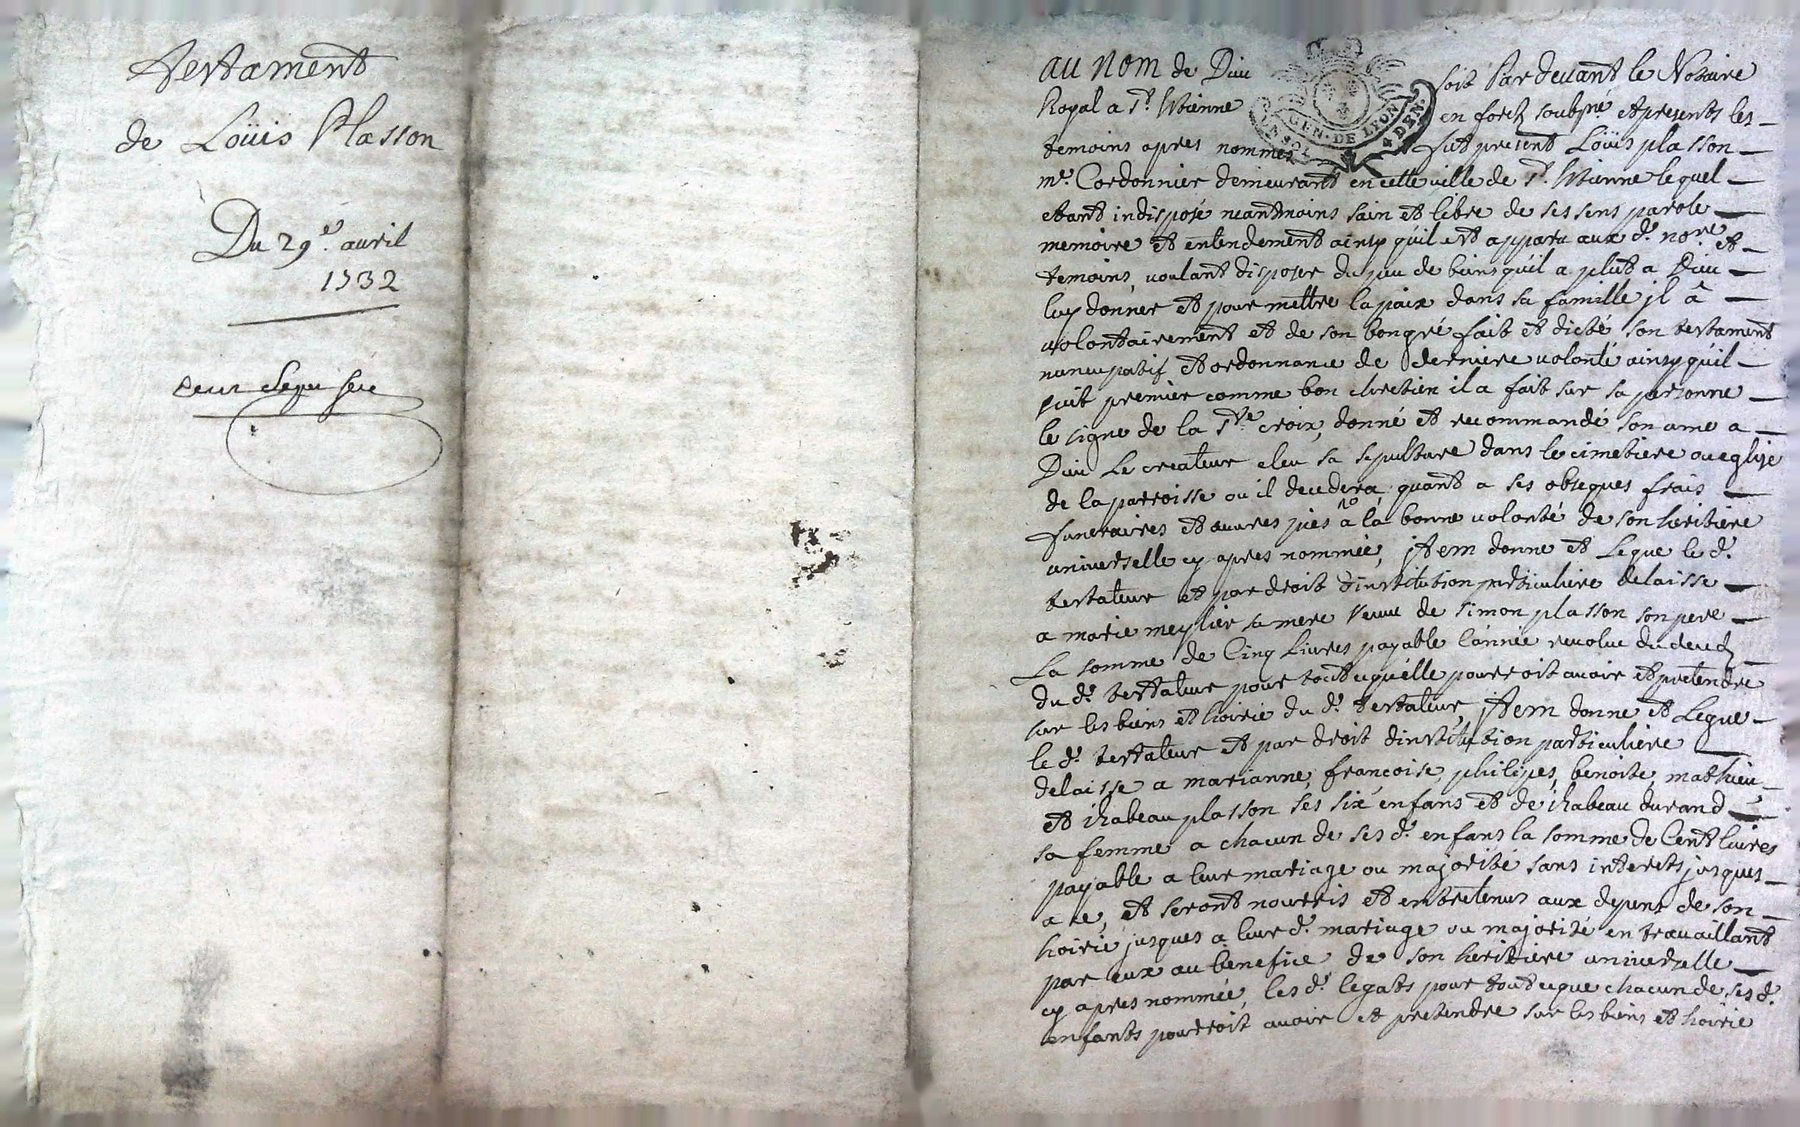 Testament
de Loüis Plasson
Du 29e. auril
1732
au nom de Dieu soit Pardeuant le Notaire
Royal a St. Etienne en forez soubsné. et presents les
temoins apres nommés fut present Loüis plasson
me. Cordonnier demeurant en cette uille de St. Etienne lequel
etant indisposé neantmoins sain et libre de ses sens parole
memoire et entendement ainsy quil est apparu aux d. nore. et
temoins, uoulant disposer du peu de biens quil a plut a Dieu
luy donner et pour mettre la paix dans sa famille jl â
uolontairement et de son bongré fait et dicté son testament
nuncupatif et ordonnance de derniere uolonté ainsy quil
suit premier comme bon chretien il a fait sur sa personne
le signe de la Ste. croix, donné et recommandé son ame a
Dieu Le createur eleu sa sepulture dans le cimetiere ou eglise
de la parroisse ou il decedera, quant a ses obseques frais
funeraires et œuures pies à la bonne uolonté de son heritiere
uniuerselle cy apres nommée, jtem donne et Legue le d.
testateur et par droit dinstitution particuliere delaisse
a marie meylier sa mere veuue de simon plasson son pere
La somme de Cinq Liures payable lannée reuolue du decedz
du d. testateur pour tout ce quélle pourroit auoir et pretendre
sur les biens et hoirie du d. testateur, jtem donne et Legue
le d. testateur et par droit dinstitution particuliere
delaisse a marianne, francoise, philipes, benoite, mathieu,
et izabeau plasson ses six enfans et de izabeau durand
sa femme a chacun de ses d. enfans la somme de Cent liures
payable a leur mariage ou majorité sans interets jusques
a ce, et seront nourris et entretenus aux depens de son
hoirie jusques a leur d. mariage ou majorité en trauaillant
par eux au benefice de son heritiere uniuerselle
cy apres nommée, les d. legats pour tout ce que chacun de ses d.
enfants pourroit auoir et pretendre sur les biens et hoirie